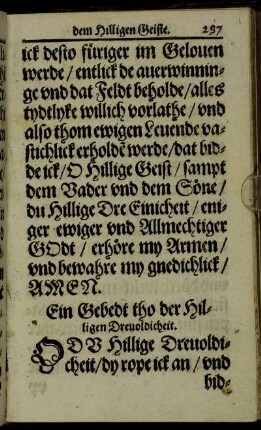 dem Hilligen Geiste. 287
ick desto füriger im Gelouen
werde / entlick de auerwinnin-
ge vnd dat Feldt beholde / alles
tydtlyke willich vorlathe / vnd
also thom ewigen Leuende va-
stichlick erholdē werde / dat bid-
de ick / O Hillige Geist / sampt
dem Vader vnd dem Söne /
du Hillige Dre Einicheit / eni-
ger ewiger vnd Allmechtiger
GOdt / erhöre my Armen /
vnd bewahre my gnedichlick /
AMEN.
Ein Gebedt tho der Hil-
ligen Dreuoldicheit.
O DV Hillige Dreuoldi-
cheit / dy rope ick an / vnd
bid-